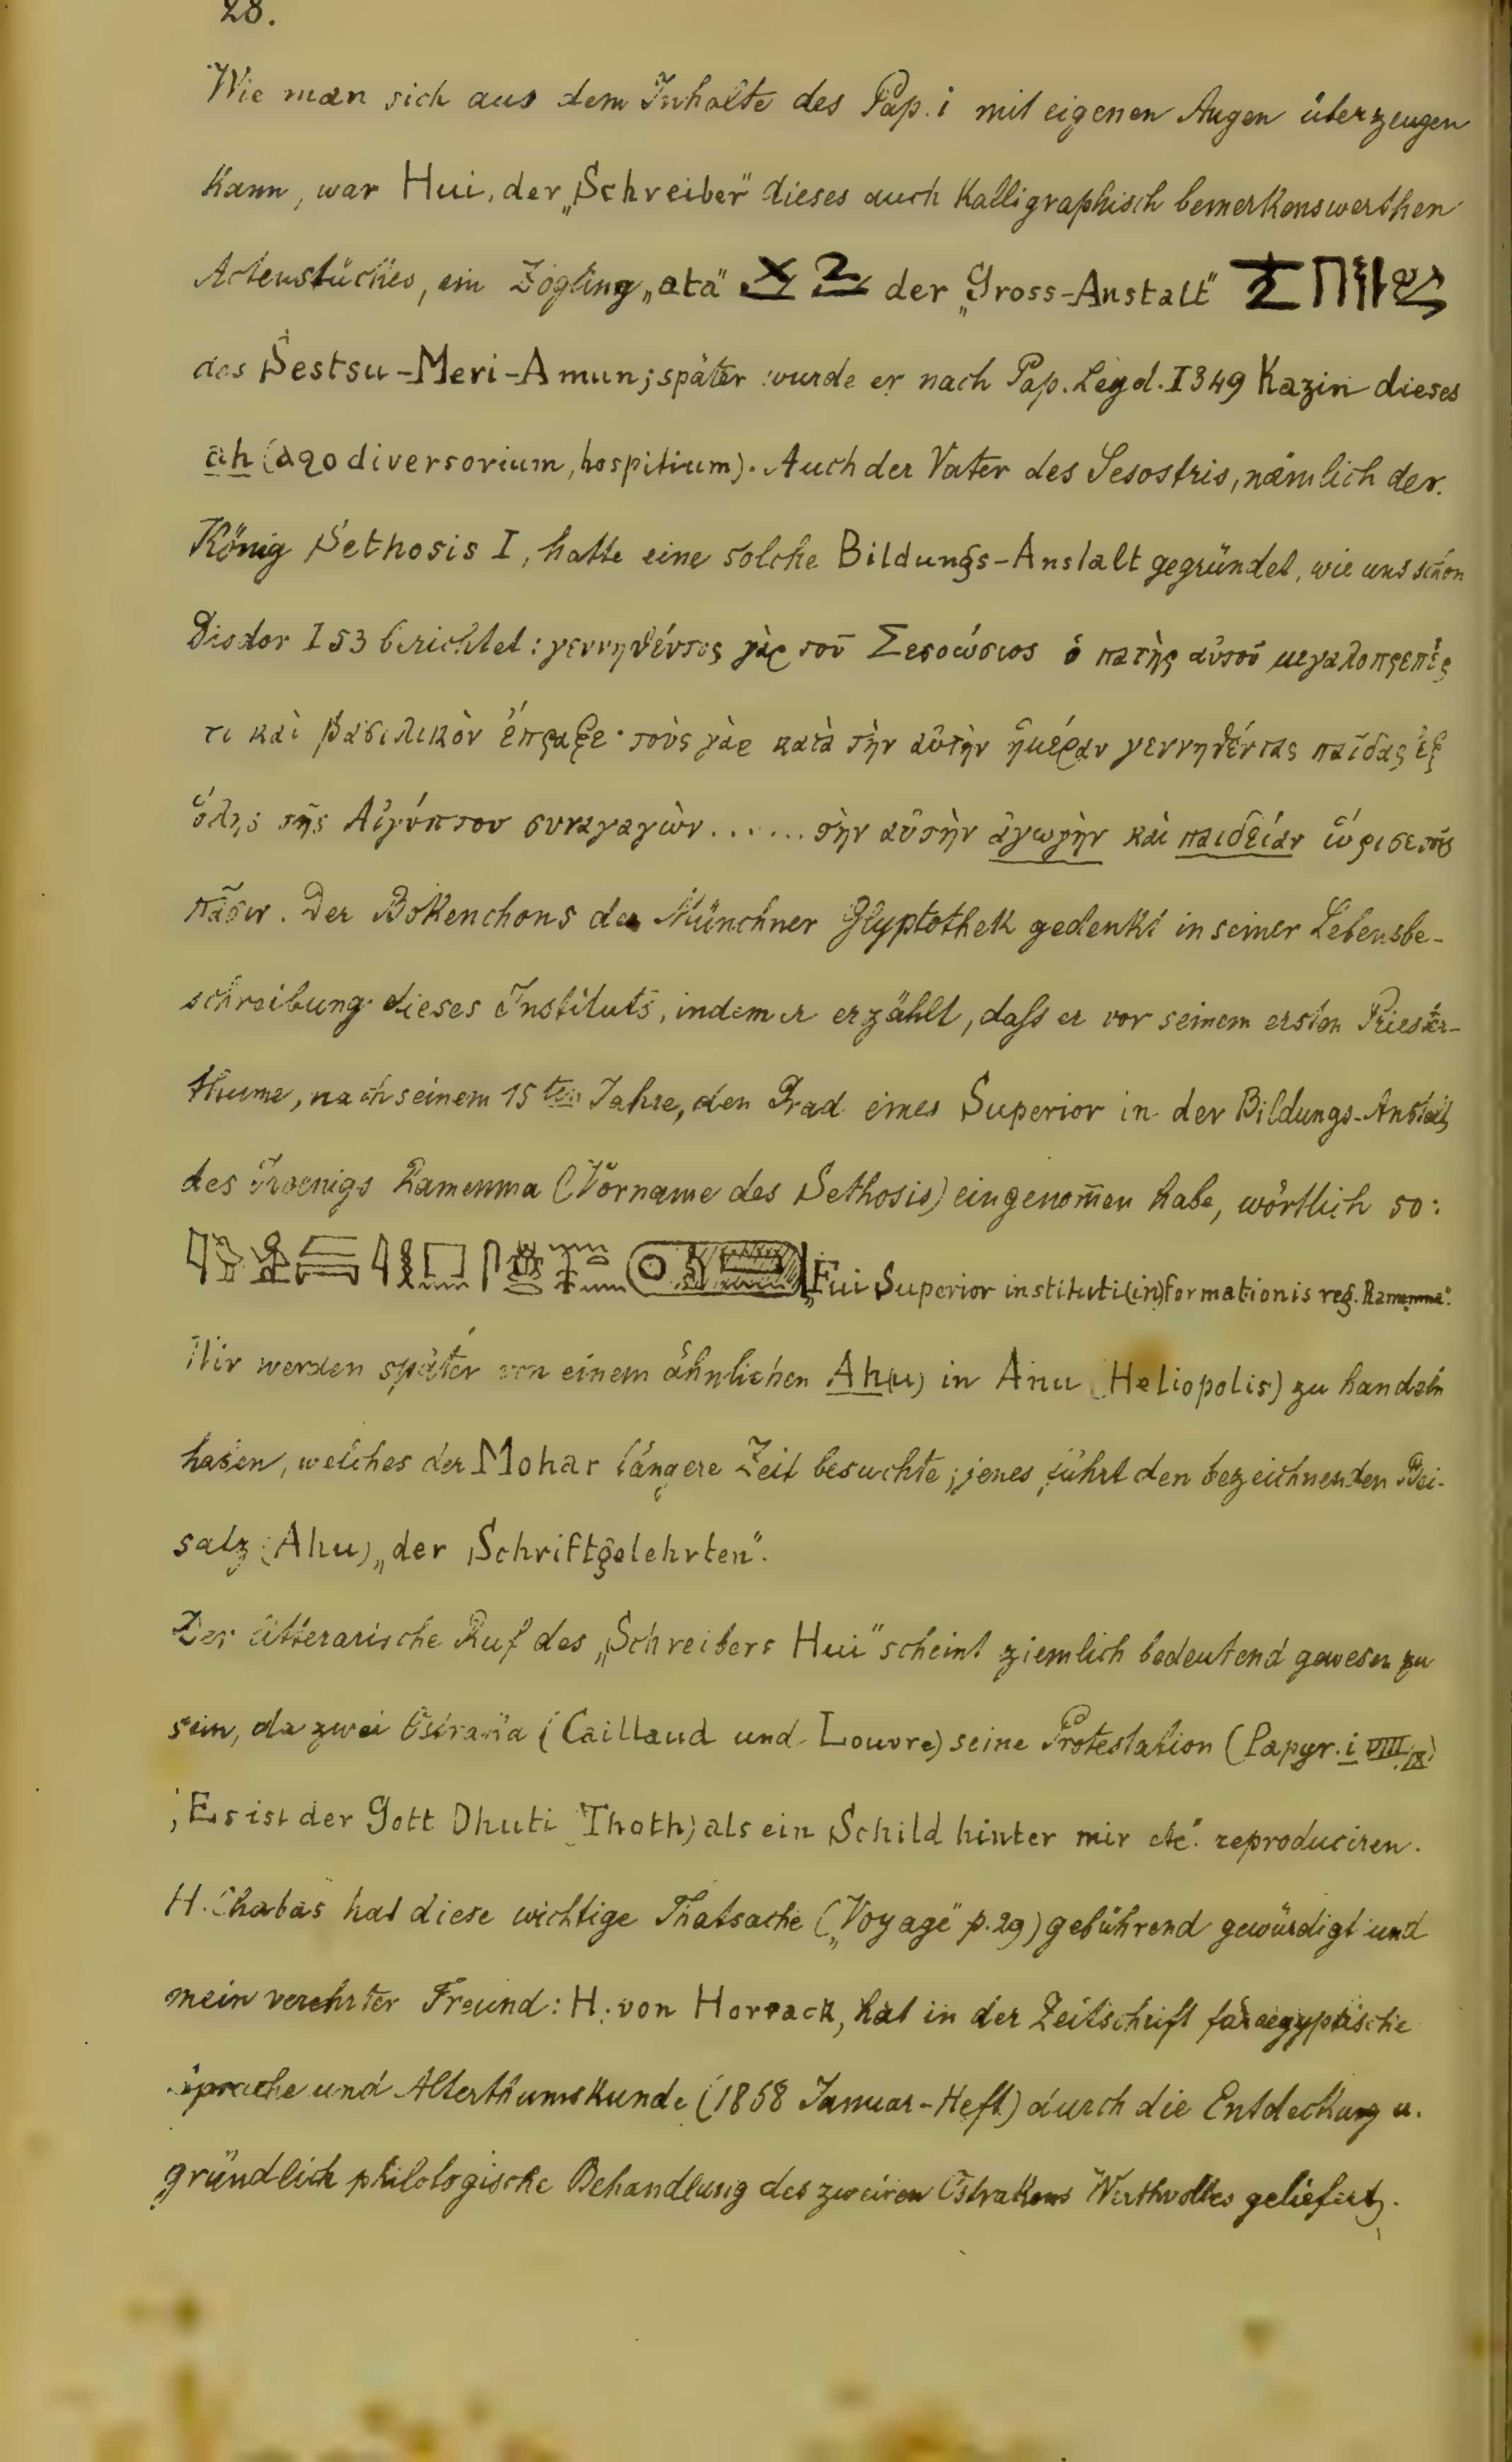 28.
Wie man sich aus dem Inhalte des Pap. i mit eigenen Augen überzeugen
kann, war Hui, der „Schreiber“ dieses auch kalligraphisch bemerkenswerthen
Actenstückes, ein Zögling „ata“ der „Gross-Anstalt“
des Sestsu-Meri-Amun; später wurde er nach Pap. Leyd. I 349 Kazin dieses
ah (diversorium, hospitium). Auch der Vater des Sesostris, nämlich der
König Sethosis I, hatte eine solche Bildungs-Anstalt gegründet, wie uns schon
Diodor I 53 berichtet: γεννηθέντος γὰρ τοῦ Σεσοώσιος ὁ πατὴρ αὐτοῦ μεγαλοπρεπές
τι καὶ βασιλικὸν ἔπραξε· τοὺς γὰρ κατὰ τὴν αὐτὴν ἡμέραν γεννηθέντας παῖδας ἐξ
ὅλης τῆς Αἰγύπτου συναγαγὼν ....... τὴν αὐτὴν ἀγωγὴν καὶ παιδείαν ὥρισε τοῖς
πᾶσιν. Der Bokenchons der Münchner Glyptothek gedenkt in seiner Lebensbe-
schreibung dieses Instituts, indem er erzählt, dafs er vor seinem ersten Priester-
thume, nach seinem 15ten Jahre, den Grad eines Superior in der Bildungs-Anstalt
des Koenigs Ramenma (Vorname des Sethosis) eingenom̄en habe, wörtlich so:
„Fui Superior instituti (in)formationis reg. Ramenma“.
Wir werden später von einem ähnlichen Ah(u) in Anu (Heliopolis) zu handeln
haben, welches der Mohar längere Zeit besuchte; jenes führt den bezeichnenden Bei-
satz (Ahu) „der Schriftgelehrten“.
Der litterarische Ruf des „Schreibers Hui“ scheint ziemlich bedeutend gewesen zu
sein, da zwei Ostraka (Caillaud und Louvre) seine Protestation (Papyr. i VIII/IX)
„Es ist der Gott Dhuti (Thoth) als ein Schild hinter mir etc“. reproduciren.
H. Chabas hat diese wichtige Thatsache („Voyage“ p. 29) gebührend gewürdigt und
mein verehrter Freund: H. von Horrack, hat in der Zeitschrift für aegyptische
Sprache und Alterthumskunde (1868 Januar-Heft) durch die Entdeckung u.
gründlich philologische Behandlung des zweiten Ostrakons Werthvolles geliefert.